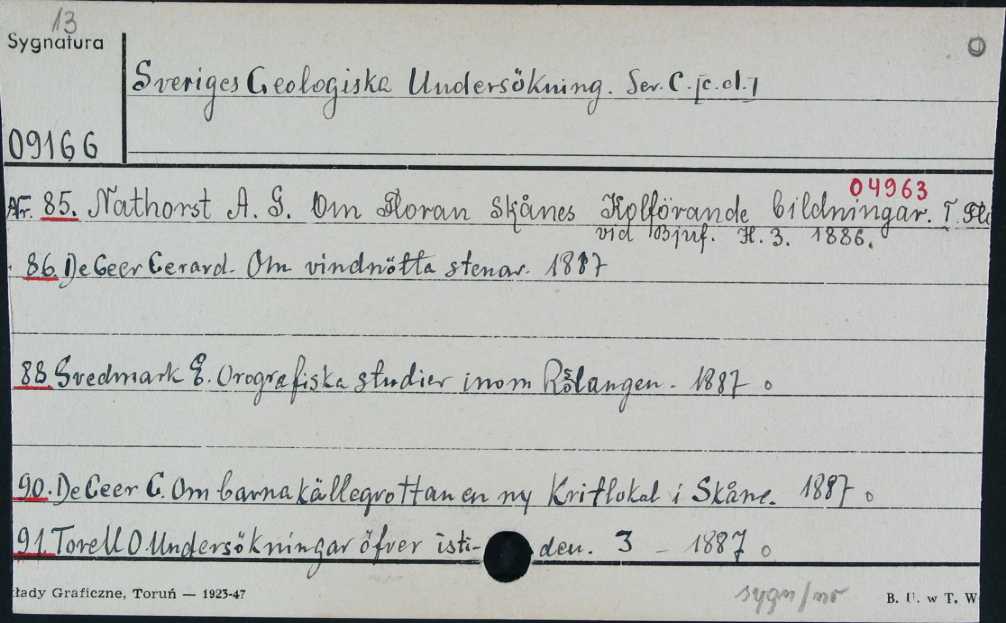 13
Sygnatura
Sveriges Geologiska Undersökning. Ser. C. [c.d.]
09166
04963
Nr. 85. Nathorst A. G. Om Floran Skånes Kolförande bildningar. I. Flo
vid Bjuf. H. 3. 1886.
86. De Geer Gerard. Om vindnötta stenar. 1887
88. Svedmark E. Orografiska studier inom Roslangen. 1887
90. De Geer G. Om barnakällegrottan en ny Kritlokal i Skåne. 1887
91. Torell O. Undersökningar öfver isti- den. 3 - 1887
łady Graficzne, Toruń — 1923-47
sygn/nr
B. U. w T. W